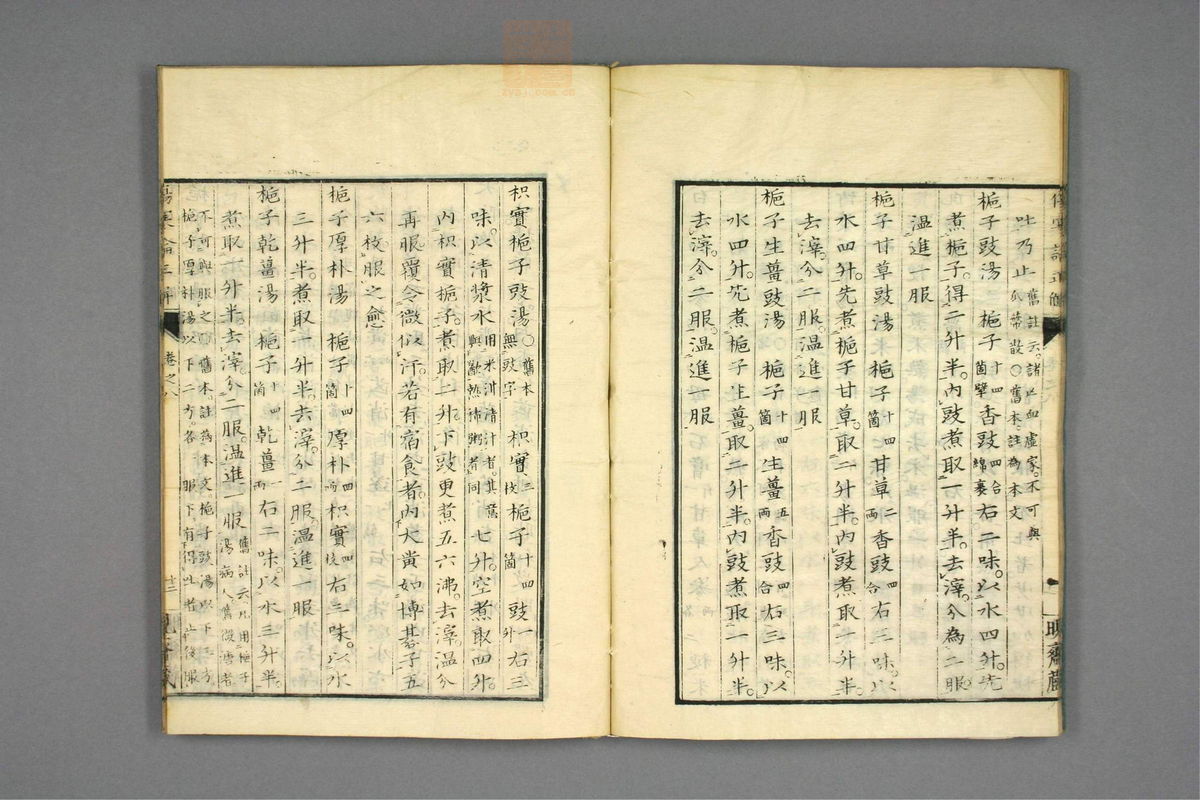 吐乃止 舊註云。諸亡血虛家。不可與瓜蔕散○舊本。註為本文
梔子豉湯 梔子十四箇擘香豉四合綿裹右二味。以水四升。先
煮梔子。得二升半。內豉煮取一升半。去滓。分為二服。
溫進一服
梔子甘草豉湯 梔子十四箇甘草二兩香豉四合右三味。以
水四升。先煮梔子甘草。取二升半。內豉煮取一升半。
去滓。分二服。溫進一服
梔子生薑豉湯○梔子十四箇生薑五兩香豉四合右三味。以
水四升。先煮梔子生薑。取二升半。內豉煮取一升半。
去滓。分二服。溫進一服
枳實梔子豉湯○舊本無豉字 枳實三枚梔子十四箇豉一升右三
味。以清漿水 七升。空煮取四升。
內枳實梔子。煮取二升。下豉更煮五六沸。去滓。溫分
再服。覆令微似汗。若有宿食者。內大黃如博棊子五
六枚。服之愈
梔子厚朴湯 梔子十四箇厚朴四兩枳實四枚右三味。以水
三升半。煮取一升半。去滓。分二服。溫進一服
梔子乾薑湯 梔子十四箇乾薑一兩右二味。以水三升半。
煮取一升半。去滓。分二服。溫進一服 舊註云。凡用梔子湯。病人舊微溏者
不可與服之○舊本。註為本文。梔子豉湯以下三方。梔子厚朴湯以下二方。各服下。有得吐者止後服
卷之八